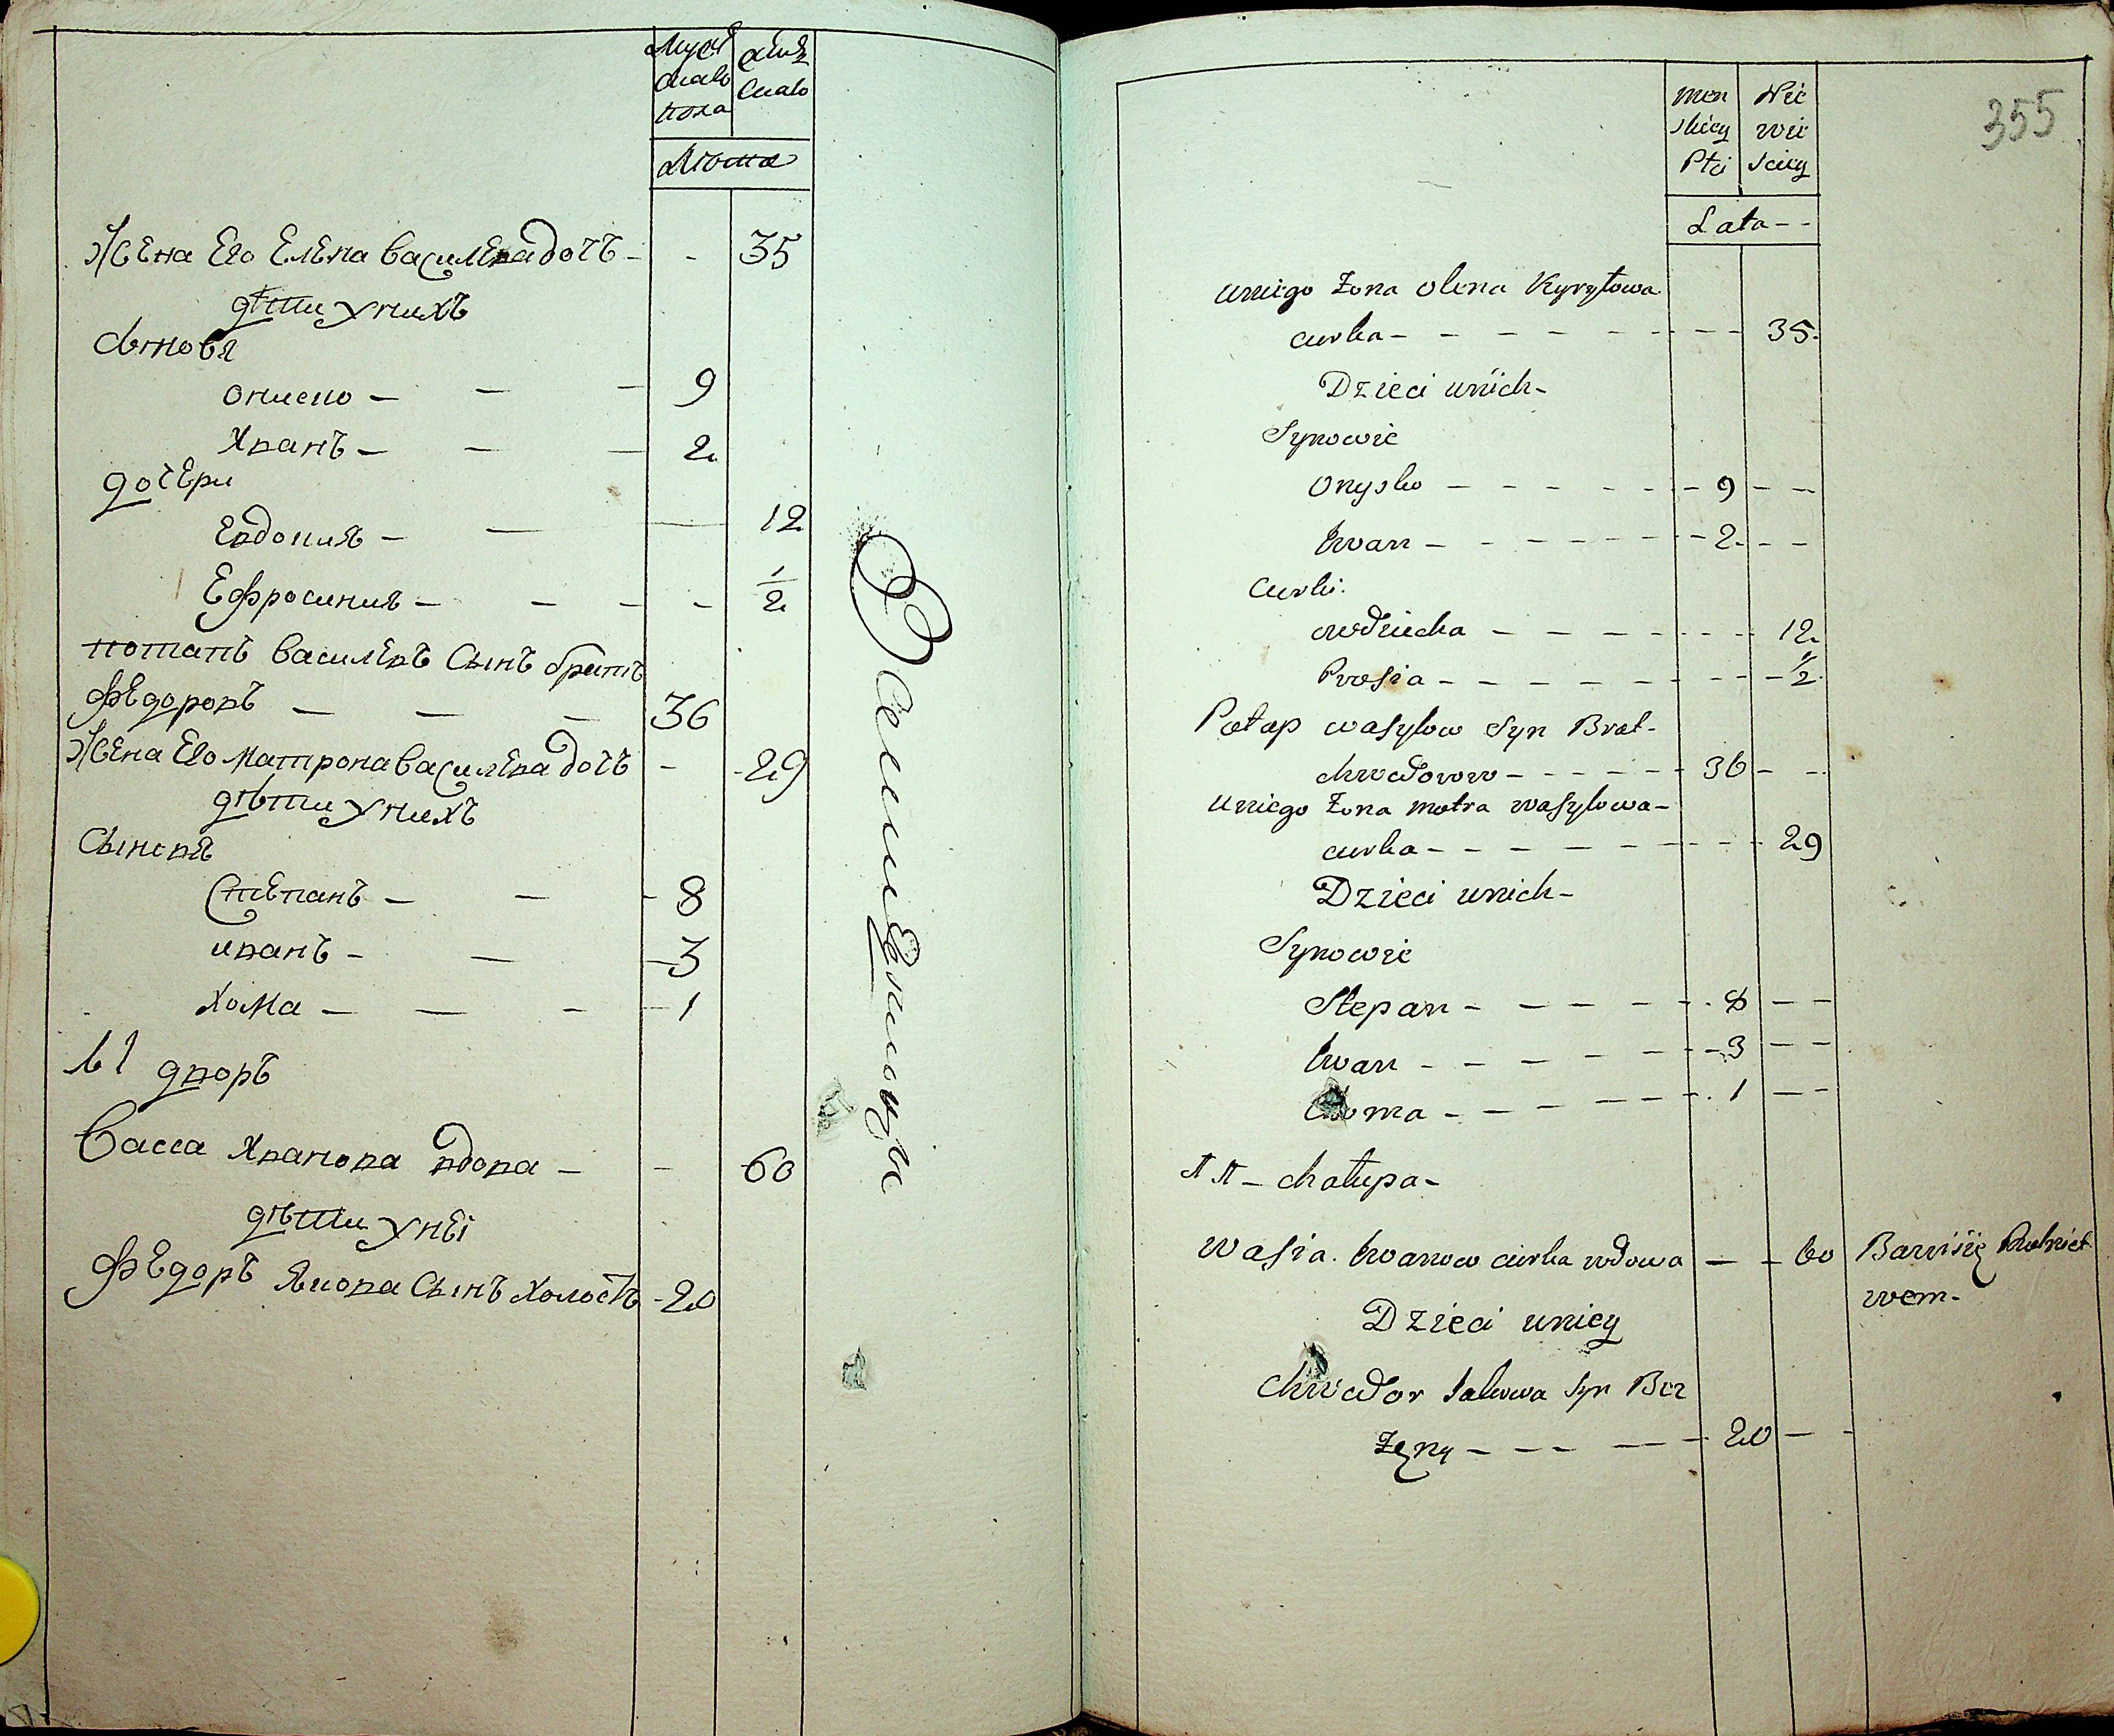 Мужс
каго
пола
женс
каго
Лѣта
Жена Его Елена Василева дочь - - 35
дѣти у нихъ
Сыновя
Описко - - - 9
Иванъ - - - 2
дочери
Евдокия - - - 12
Ефросиния - - - - 1/2
потапъ Василевъ Сынъ братъ
Федоровъ - - - 36
Жена Его Матрона Василева дочь - 29
дѣти у нихъ
Сыновя
Степанъ - - - 8
иванъ - - - 3
Хома - - - 1
дворъ
Васса Иванова вдова - - 60
дѣти у неі
Федоръ Якова Сынъ холостъ - 20
355
men
skiey
Płci
Nie
wie
sciey
Lata - -
uniego Żona olena Kyryłowa
curka - - - - - - - - 35.
Dzieci unich -
Synowie
Onysko - - - - - - 9 - -
Iwan - - - - - - - 2 - -
Curki.
owdziucha - - - - - - - 12
Prosia - - - - - - - - 1/2
Potap wasylow Syn Brat -
chwedorow - - - - - - 36 - -
uniego Żona motra wasylowa -
curka - - - - - - - - 29
Dzieci unich -
Synowie
Stepan - - - - - 8 - -
Iwan - - - - - - 3 - -
Choma - - - - - - 1 - -
chałupa -
Wasia. Iwanow curka wdowa - - 60
Bawi się
wem -
Dzieci uniey
Chwedor Jakowa Syn Bez
Żęny - - - - - 20 - -